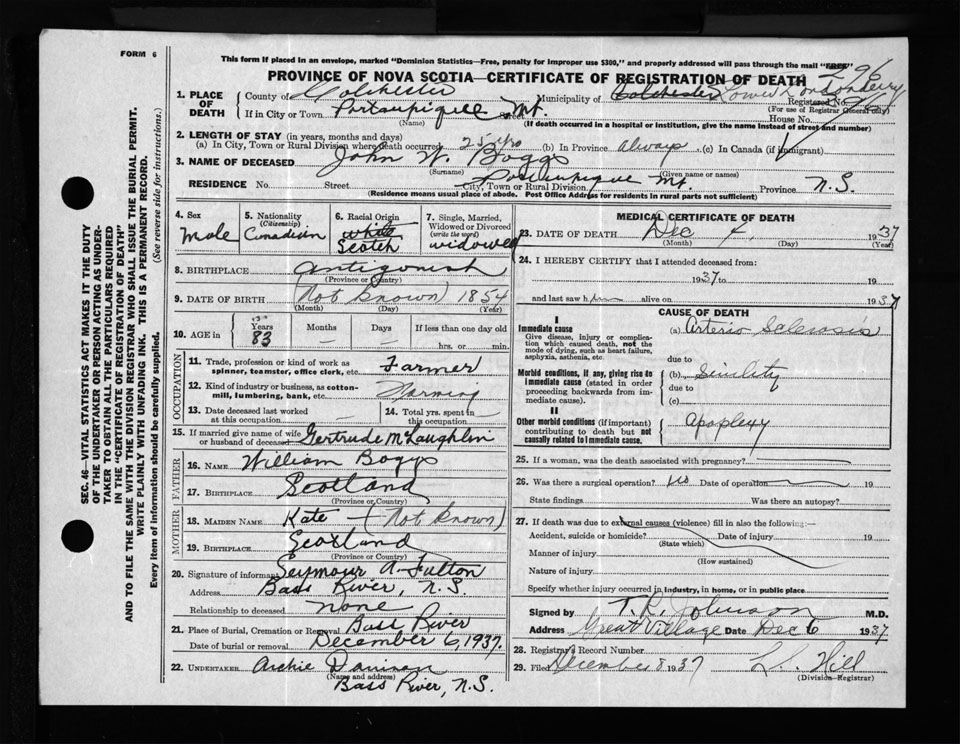 FORM 6
This form if placed in an envelope, marked "Dominion Statistics—Free, penalty for improper use $300," and properly addressed will pass through the mail "FREE"
296
PROVINCE OF NOVA SCOTIA—CERTIFICATE OF REGISTRATION OF DEATH
1. PLACE OF DEATH
County of Colchester Municipality of Colchester Lower Londonderry
Registered No.
(For use of Registrar General only)
If in City or Town Portaupique Mt. House No.
(Name) (If death occurred in a hospital or institution, give the name instead of street and number)
2. LENGTH OF STAY (in years, months and days)
(a) In City, Town or Rural Division where death occurred 25 yrs (b) In Province always (c) In Canada (if immigrant)
3. NAME OF DECEASED John W. Boggs
(Surname) (Given name or names)
RESIDENCE No. Street Portaupique Mt. Province N.S.
City, Town or Rural Division
(Residence means usual place of abode. Post Office Address for residents in rural parts not sufficient)
4. Sex Male
5. Nationality (Citizenship) Canadian
6. Racial Origin white Scotch
7. Single, Married, Widowed or Divorced (write the word) widowed
8. BIRTHPLACE Antigonish
(Province or Country)
9. DATE OF BIRTH (Not known) 1854
(Month) (Day) (Year)
10. AGE in Years 83 Months — Days — If less than one day old
hrs. or min.
OCCUPATION
11. Trade, profession or kind of work as spinner, teamster, office clerk, etc. Farmer
12. Kind of industry or business, as cotton-mill, lumbering, bank, etc. Farming
13. Date deceased last worked at this occupation
14. Total yrs. spent in this occupation
15. If married give name of wife or husband of deceased Gertrude McLaughlin
FATHER
16. NAME William Boggs
17. BIRTHPLACE Scotland
(Province or Country)
MOTHER
18. MAIDEN NAME Kate — (Not known)
19. BIRTHPLACE Scotland
(Province or Country)
20. Signature of informant Seymour A. Fulton
Address Bass River, N.S.
Relationship to deceased none
21. Place of Burial, Cremation or Removal Bass River
Date of burial or removal December 6, 1937.
22. UNDERTAKER Archie
(Name and address)
Bass River, N.S.
MEDICAL CERTIFICATE OF DEATH
23. DATE OF DEATH Dec 4, 1937
(Month) (Day) (Year)
24. I HEREBY CERTIFY that I attended deceased from:
1937 to 19
and last saw him alive on 1937
CAUSE OF DEATH
I
Immediate cause
Give disease, injury or complication which caused death, not the mode of dying, such as heart failure, asphyxia, asthenia, etc.
(a) Arterio Sclerosis
due to
Morbid conditions, if any, giving rise to immediate cause (stated in order proceeding backwards from immediate cause).
(b) Senility
due to
(c)
II
Other morbid conditions (if important) contributing to death but not causally related to immediate cause.
Apoplexy
25. If a woman, was the death associated with pregnancy?
26. Was there a surgical operation? No Date of operation 19
State findings Was there an autopsy?
27. If death was due to external causes (violence) fill in also the following:—
Accident, suicide or homicide? Date of injury 19
(State which)
Manner of injury
(How sustained)
Nature of injury
Specify whether injury occurred in industry, in home, or in public place
Signed by T. R. Johnson M.D.
Address Great Village Date Dec 6 1937
28. Registrar's Record Number
29. Filed December 8 1937 L. Hill
(Division-Registrar)
SEC. 46—VITAL STATISTICS ACT MAKES IT THE DUTY
OF THE UNDERTAKER OR PERSON ACTING AS UNDER-
TAKER TO OBTAIN ALL THE PARTICULARS REQUIRED
IN THE "CERTIFICATE OF REGISTRATION OF DEATH"
AND TO FILE THE SAME WITH THE DIVISION REGISTRAR WHO SHALL ISSUE THE BURIAL PERMIT.
WRITE PLAINLY WITH UNFADING INK. THIS IS A PERMANENT RECORD.
Every item of information should be carefully supplied. (See reverse side for instructions.)